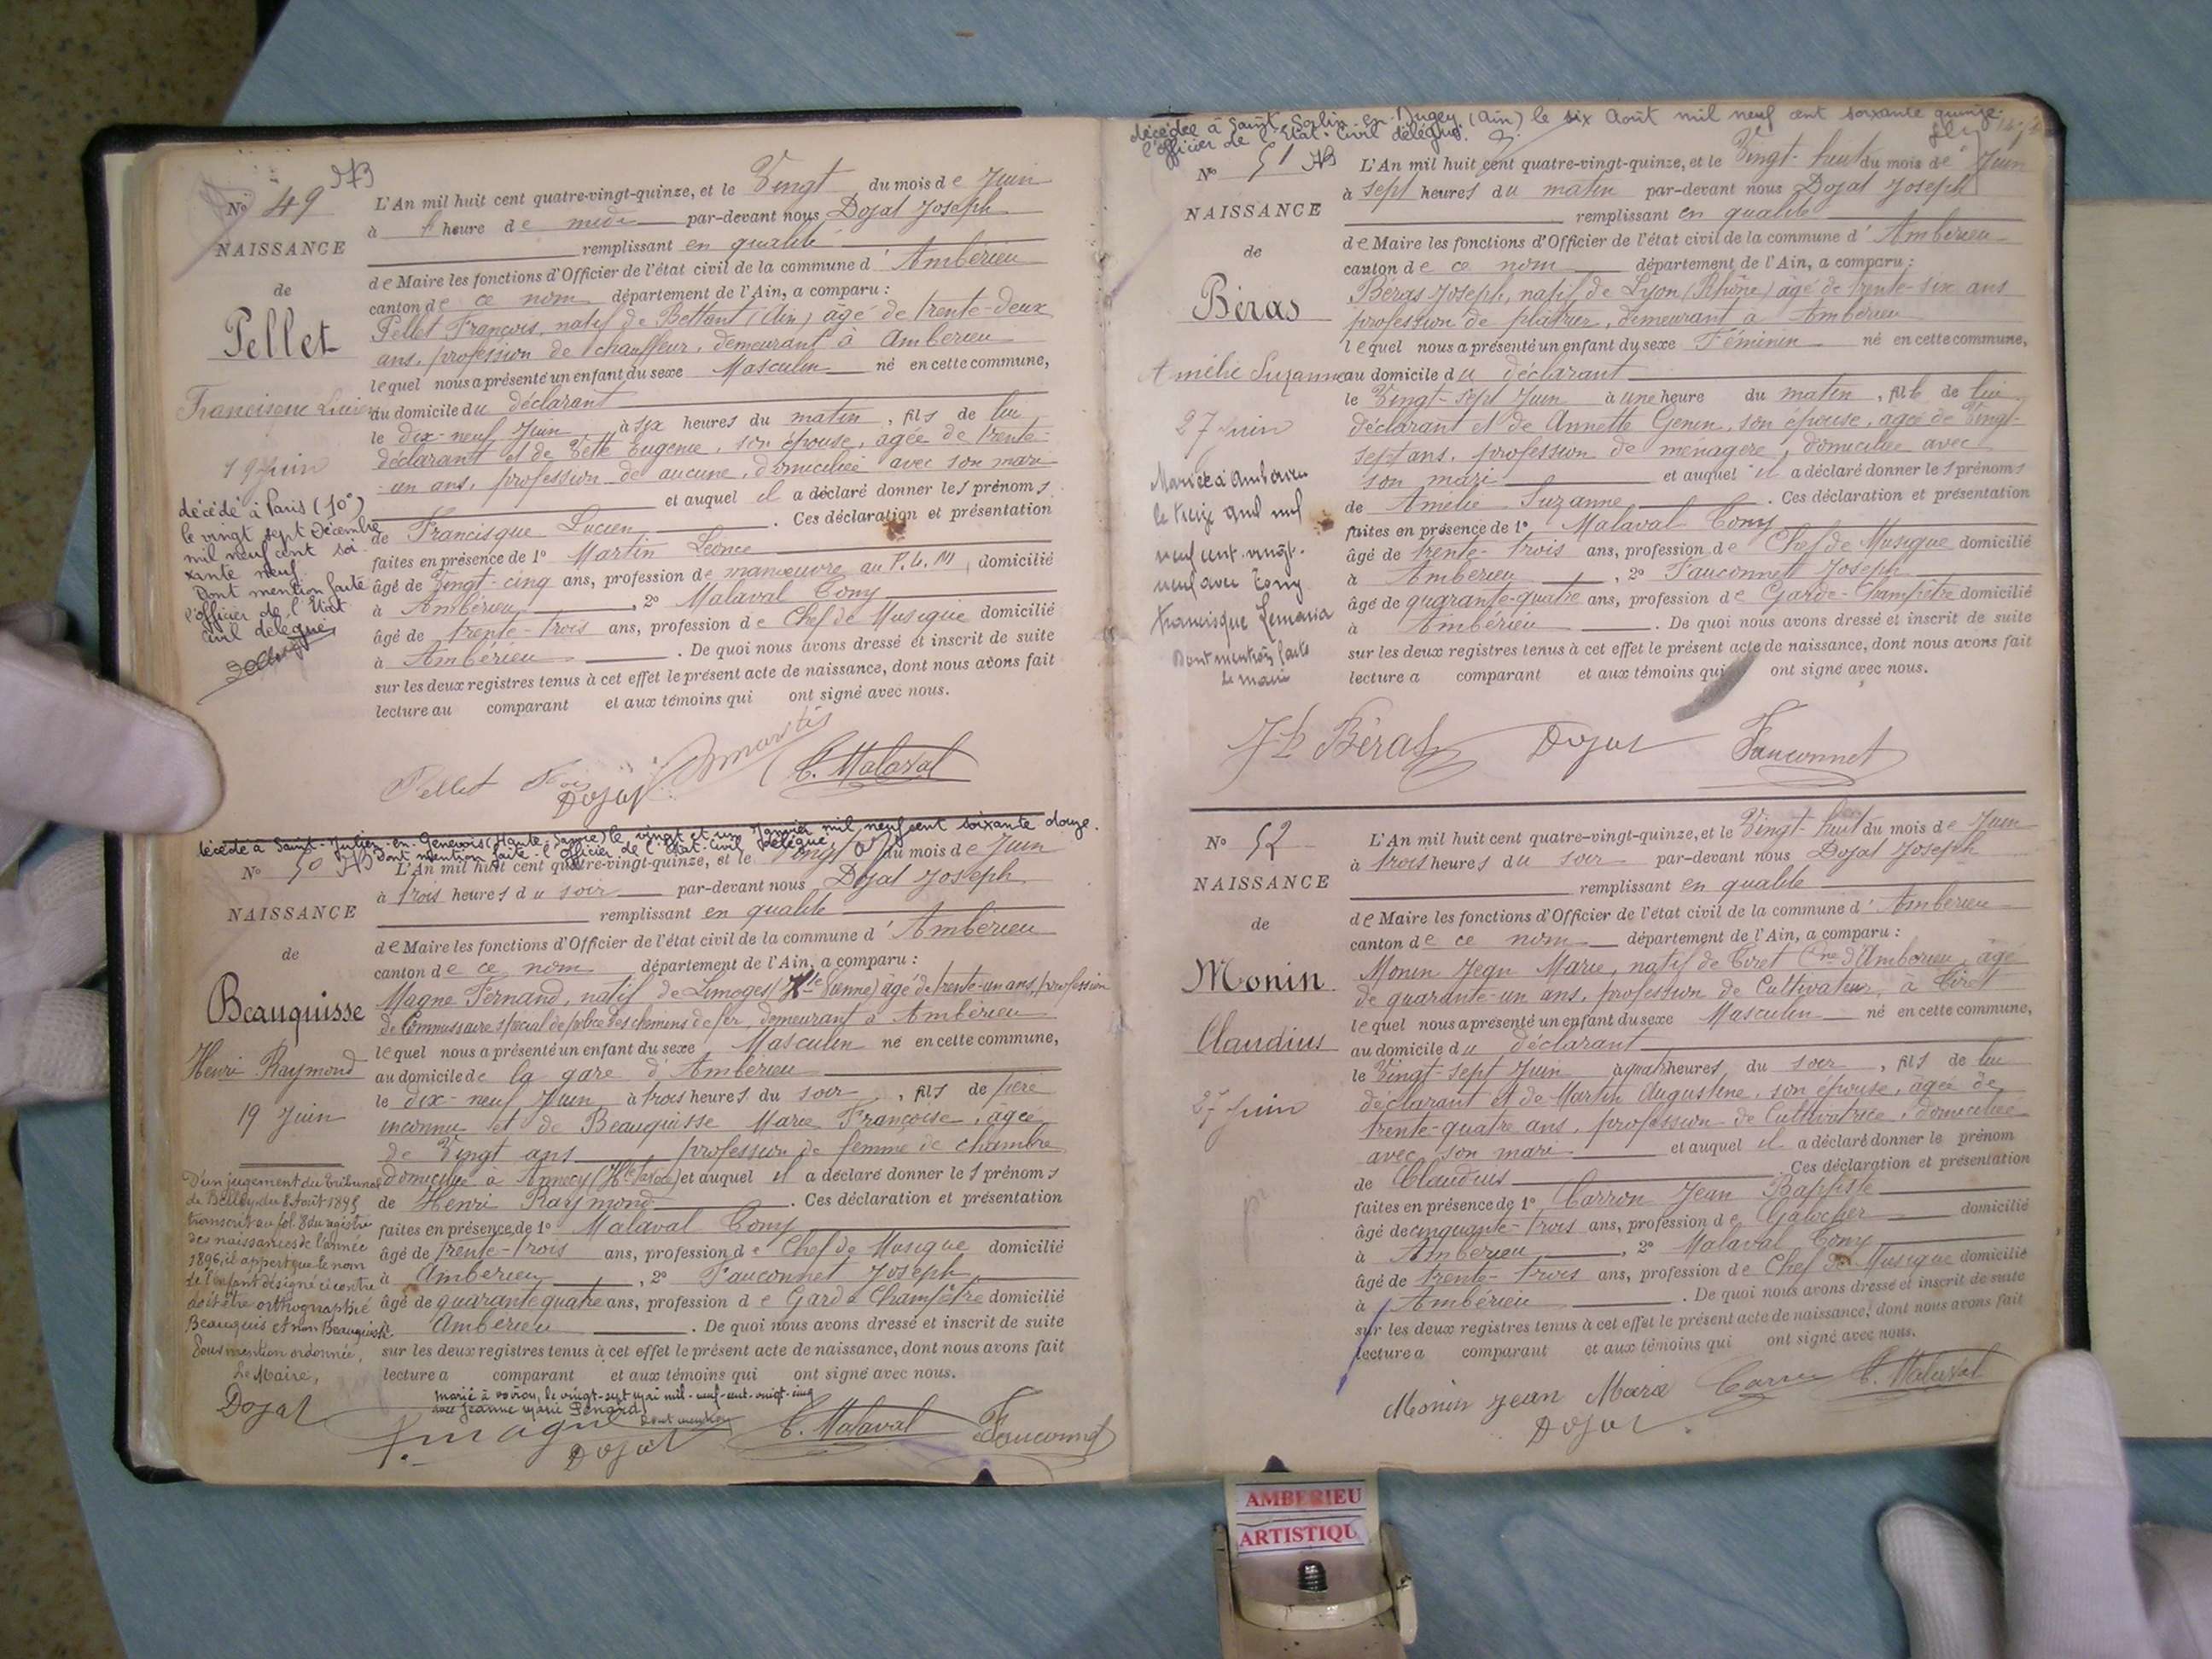 N° 49
NAISSANCE
de
Pellet
19 Juin
décédé à Paris (10e)
le vingt sept Décembre
mil neuf cent soi-
xante neuf.
Dont mention faite
l'officier de l'Etat
Civil délégué,
L'An mil huit cent quatre-vingt-quinze, et le Vingt du mois de Juin
à 1 heure de midi par-devant nous Dojat Joseph
remplissant en qualité
de Maire les fonctions d'Officier de l'état civil de la commune d'Ambérieu
canton de ce nom département de l'Ain, a comparu :
Pellet François, natif de Bettant (Ain) âgé de trente-deux
ans, profession de chauffeur, demeurant à Ambérieu
lequel nous a présenté un enfant du sexe Masculin né en cette commune,
au domicile du déclarant
le dix-neuf Juin à six heures du matin, fils de lui
déclarant et de Vette Eugénie, son épouse, âgée de trente-
un ans, profession de aucune, domiciliée avec son mari
et auquel il a déclaré donner les prénoms
de Francisque Lucien. Ces déclaration et présentation
faites en présence de 1° Martin Léonce
âgé de Vingt-cinq ans, profession de manœuvre au P.L.M, domicilié
à Ambérieu, 2° Malaval Tony
âgé de trente-trois ans, profession de Chef de Musique domicilié
à Ambérieu. De quoi nous avons dressé et inscrit de suite
sur les deux registres tenus à cet effet le présent acte de naissance, dont nous avons fait
lecture au comparant et aux témoins qui ont signé avec nous.
Pellet Fois
Dojat
T. Malaval
décédé à Saint-Julien-en-Genevois (Haute-Savoie) le vingt et un Janvier mil neuf cent soixante douze.
Dont mention faite - l'officier de l'Etat-Civil délégué
N° 50
NAISSANCE
de
Beauquisse
Henri Raymond
19 Juin
D'un jugement du Tribunal
de Belley du 8 Août 1895
transcrit au fol. 8 du registre
des naissances de l'année
1896, il appert que le nom
de l'enfant désigné ci contre
doit être orthographié
Beauquis et non Beauquisse.
Dous mention ordonnée,
Le Maire,
Dojat
L'An mil huit cent quatre-vingt-quinze, et le Vingt du mois de Juin
à trois heures du soir par-devant nous Dojat Joseph
remplissant en qualité
de Maire les fonctions d'Officier de l'état civil de la commune d'Ambérieu
canton de ce nom département de l'Ain, a comparu :
Magne Fernand, natif de Limoges (Hte Vienne) âgé de trente-un ans, profession
de Commissaire spécial de police des chemins de fer, demeurant à Ambérieu
lequel nous a présenté un enfant du sexe Masculin né en cette commune,
au domicile de la gare d'Ambérieu
le dix-neuf Juin à trois heures du soir, fils de père
inconnu et de Beauquisse Marie Françoise, âgée
de Vingt ans profession de femme de chambre
domiciliée à Annecy (Hte Savoie) et auquel il a déclaré donner les prénoms
de Henri Raymond. Ces déclaration et présentation
faites en présence de 1° Malaval Tony
âgé de trente-trois ans, profession de Chef de Musique domicilié
à Ambérieu, 2° Fauconnet Joseph
âgé de quarante quatre ans, profession de Garde Champêtre domicilié
à Ambérieu. De quoi nous avons dressé et inscrit de suite
sur les deux registres tenus à cet effet le présent acte de naissance, dont nous avons fait
lecture a comparant et aux témoins qui ont signé avec nous.
marié à Voiron, le vingt-sept mai mil-neuf-cent-vingt-cinq
avec Jeanne Marie Pénard, Dont mention
F. Magne
Dojat
T. Malaval
Fauconnet
décédée à Saint-Sorlin-en-Bugey (Ain) le six Août mil neuf cent soixante quinze.
l'officier de l'Etat-Civil délégué.
N° 51
NAISSANCE
de
Béras
Amélie Suzanne
27 Juin
Mariée à Ambérieu
le treize avril mil
neuf cent vingt-
neuf avec Tony
Francisque
Dont mention faite
Le maire
L'An mil huit cent quatre-vingt-quinze, et le Vingt-huit du mois de Juin
à sept heures du matin par-devant nous Dojat Joseph
remplissant en qualité
de Maire les fonctions d'Officier de l'état civil de la commune d'Ambérieu
canton de ce nom département de l'Ain, a comparu :
Béras Joseph, natif de Lyon (Rhône) âgé de trente-six ans
profession de plâtrier, demeurant à Ambérieu
lequel nous a présenté un enfant du sexe Féminin né en cette commune,
au domicile du déclarant
le Vingt-sept Juin à une heure du matin, fille de lui
déclarant et de Annette Genin, son épouse, âgée de Vingt-
sept ans, profession de ménagère, domiciliée avec
son mari et auquel il a déclaré donner les prénoms
de Amélie Suzanne. Ces déclaration et présentation
faites en présence de 1° Malaval Tony
âgé de trente-trois ans, profession de Chef de Musique domicilié
à Ambérieu, 2° Fauconnet Joseph
âgé de quarante-quatre ans, profession de Garde-Champêtre domicilié
à Ambérieu. De quoi nous avons dressé et inscrit de suite
sur les deux registres tenus à cet effet le présent acte de naissance, dont nous avons fait
lecture a comparant et aux témoins qui ont signé avec nous.
Jh Béras
Dojat
Fauconnet
N° 52
NAISSANCE
de
Monin
Claudius
27 Juin
L'An mil huit cent quatre-vingt-quinze, et le Vingt-huit du mois de Juin
à trois heures du soir par-devant nous Dojat Joseph
remplissant en qualité
de Maire les fonctions d'Officier de l'état civil de la commune d'Ambérieu
canton de ce nom département de l'Ain, a comparu :
Monin Jean Marie, natif de Tiret Cne d'Ambérieu, âgé
de quarante-un ans, profession de Cultivateur, à Tiret
lequel nous a présenté un enfant du sexe Masculin né en cette commune,
au domicile du déclarant
le Vingt-sept Juin à quatre heures du soir, fils de lui
déclarant et de Martin Augustine, son épouse, âgée de
trente-quatre ans, profession de Cultivatrice, domiciliée
avec son mari et auquel il a déclaré donner le prénom
de Claudius. Ces déclaration et présentation
faites en présence de 1° Carron Jean Baptiste
âgé de cinquante-trois ans, profession de Galocher domicilié
à Ambérieu, 2° Malaval Tony
âgé de trente-trois ans, profession de Chef de Musique domicilié
à Ambérieu. De quoi nous avons dressé et inscrit de suite
sur les deux registres tenus à cet effet le présent acte de naissance, dont nous avons fait
lecture a comparant et aux témoins qui ont signé avec nous.
Monin Jean Marie
Dojat
T. Malaval
AMBERIEU
ARTISTIQU